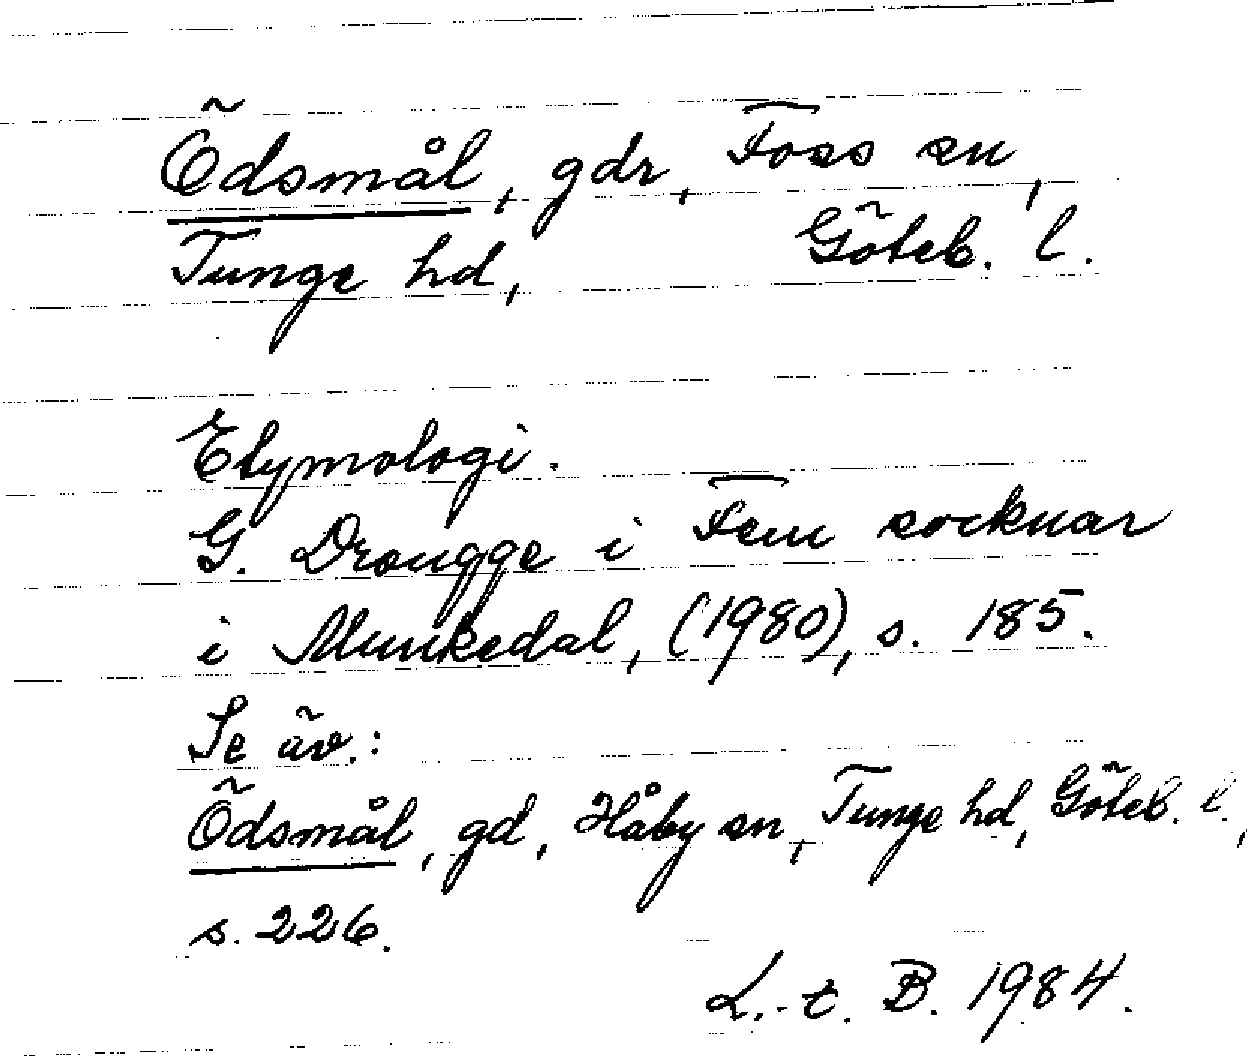 Ödsmål, gdr, Foss sn,
Tunge hd, Göteb. l.
Etymologi.
G. Drougge i Fem socknar
i Munkedal, (1980), s. 185.
Se äv.:
Ödsmål, gd, Håby sn, Tunge hd, Göteb. l.,
s. 226.
L.-t. B. 1984.